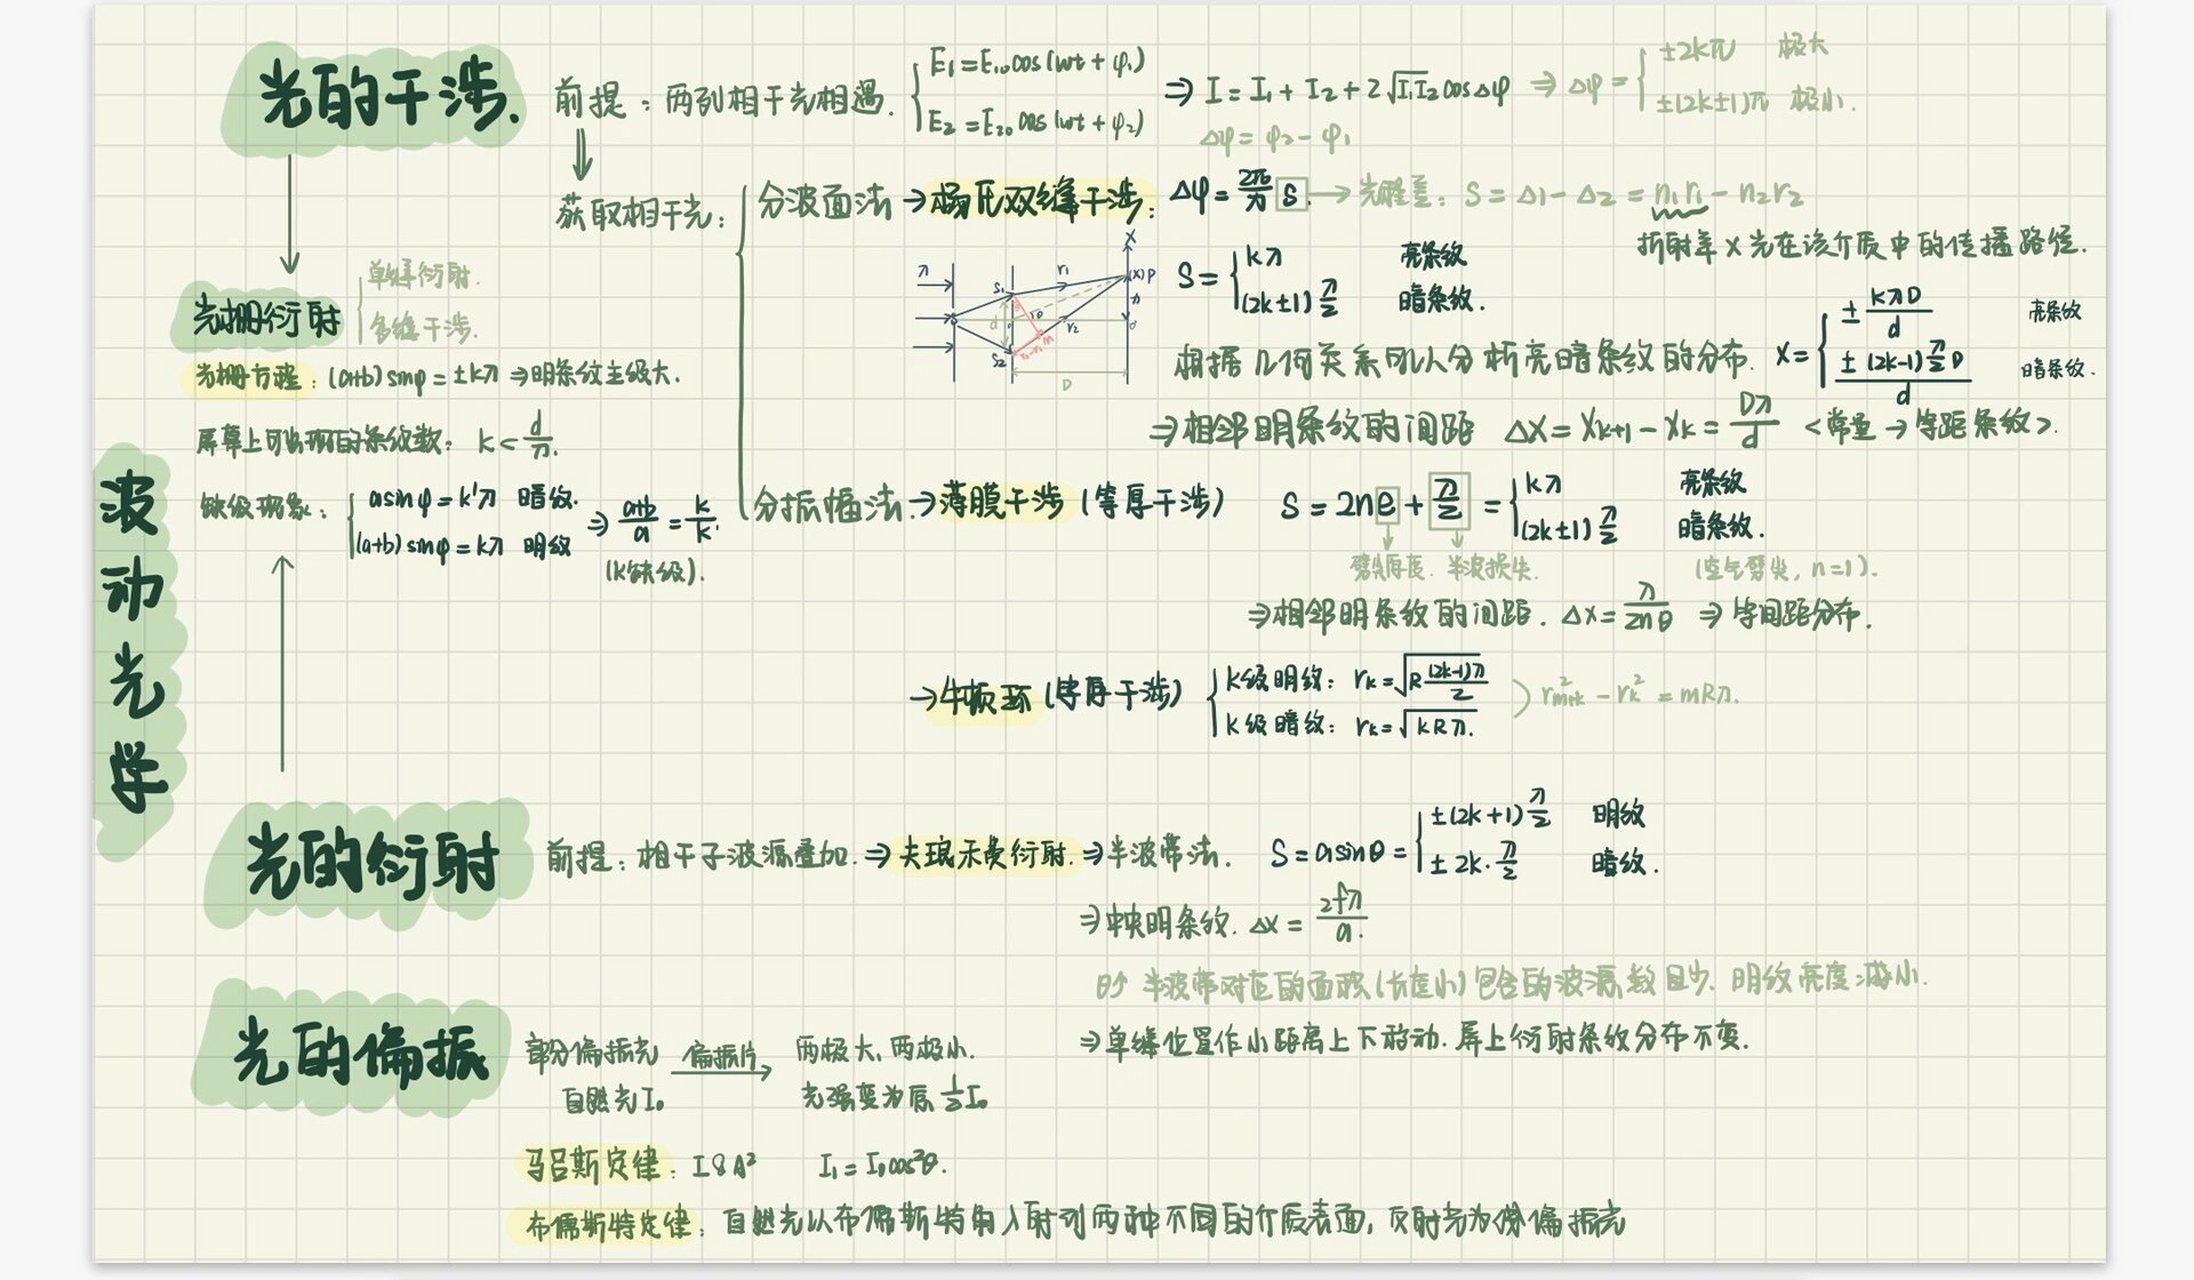 波动光学
光的干涉.
前提：两列相干光相遇.
E₁=E₁₀cos(wt+φ₁)
E₂=E₂₀cos(wt+φ₂)
⇒ I=I₁+I₂+2√I₁I₂cosΔφ ⇒ Δφ=
±2kπ 极大
±(2k±1)π 极小.
Δφ=φ₂-φ₁
获取相干光：
分波面法 → 杨氏双缝干涉：Δφ=2π/λ S. → 光程差：S=Δ1-Δ2=n₁r₁-n₂r₂
折射率×光在该介质中的传播路径.
λ
S₁
S₂
r₁
r₂
r₀
d
D
X
(X)P
S=
kλ 亮条纹
(2k±1)λ/2 暗条纹.
根据几何关系可以分析亮暗条纹的分布. X=
±kλD/d 亮条纹
±(2k-1)λ/2 D/d 暗条纹.
⇒相邻明条纹的间距 ΔX=X_{k+1}-X_k=Dλ/d <常量→等距条纹>.
分振幅法. → 薄膜干涉(等厚干涉) S=2ne+λ/2=
kλ 亮条纹
(2k±1)λ/2 暗条纹.
劈尖厚度. 半波损失. (空气劈尖, n=1).
⇒相邻明条纹的间距. Δx=λ/2nθ ⇒ 等间距分布.
→牛顿环(等厚干涉)
k级明纹：r_k=√R(2k-1)λ/2
k级暗纹：r_k=√kRλ.
r²_{m+k}-r_k²=mRλ.
光栅衍射
单缝衍射.
多缝干涉.
光栅方程：(a+b)sinφ=±kλ ⇒明条纹主级大.
屏幕上可出现的条纹数：k<d/λ.
缺级现象：
asinφ=k'λ 暗纹.
(a+b)sinφ=kλ 明纹
⇒ a+b/a=k/k'
(k缺级).
光的衍射
前提：相干子波源叠加. ⇒夫琅禾费衍射. ⇒半波带法. S=asinθ=
±(2k+1)λ/2 明纹
±2k·λ/2 暗纹.
⇒中央明条纹. Δx=2fλ/a.
θ↑ 半波带对应的面积(长度小)包含的波源数目少. 明纹亮度减小.
⇒单缝位置作小距离上下移动. 屏上衍射条纹分布不变.
光的偏振
部分偏振光 偏振片 两极大、两极小.
自然光I₀ 光强变为原½I₀
马吕斯定律：I∝A² I₁=I₀cos²θ.
布儒斯特定律：自然光以布儒斯特角入射到两种不同的介质表面, 反射光为线偏振光